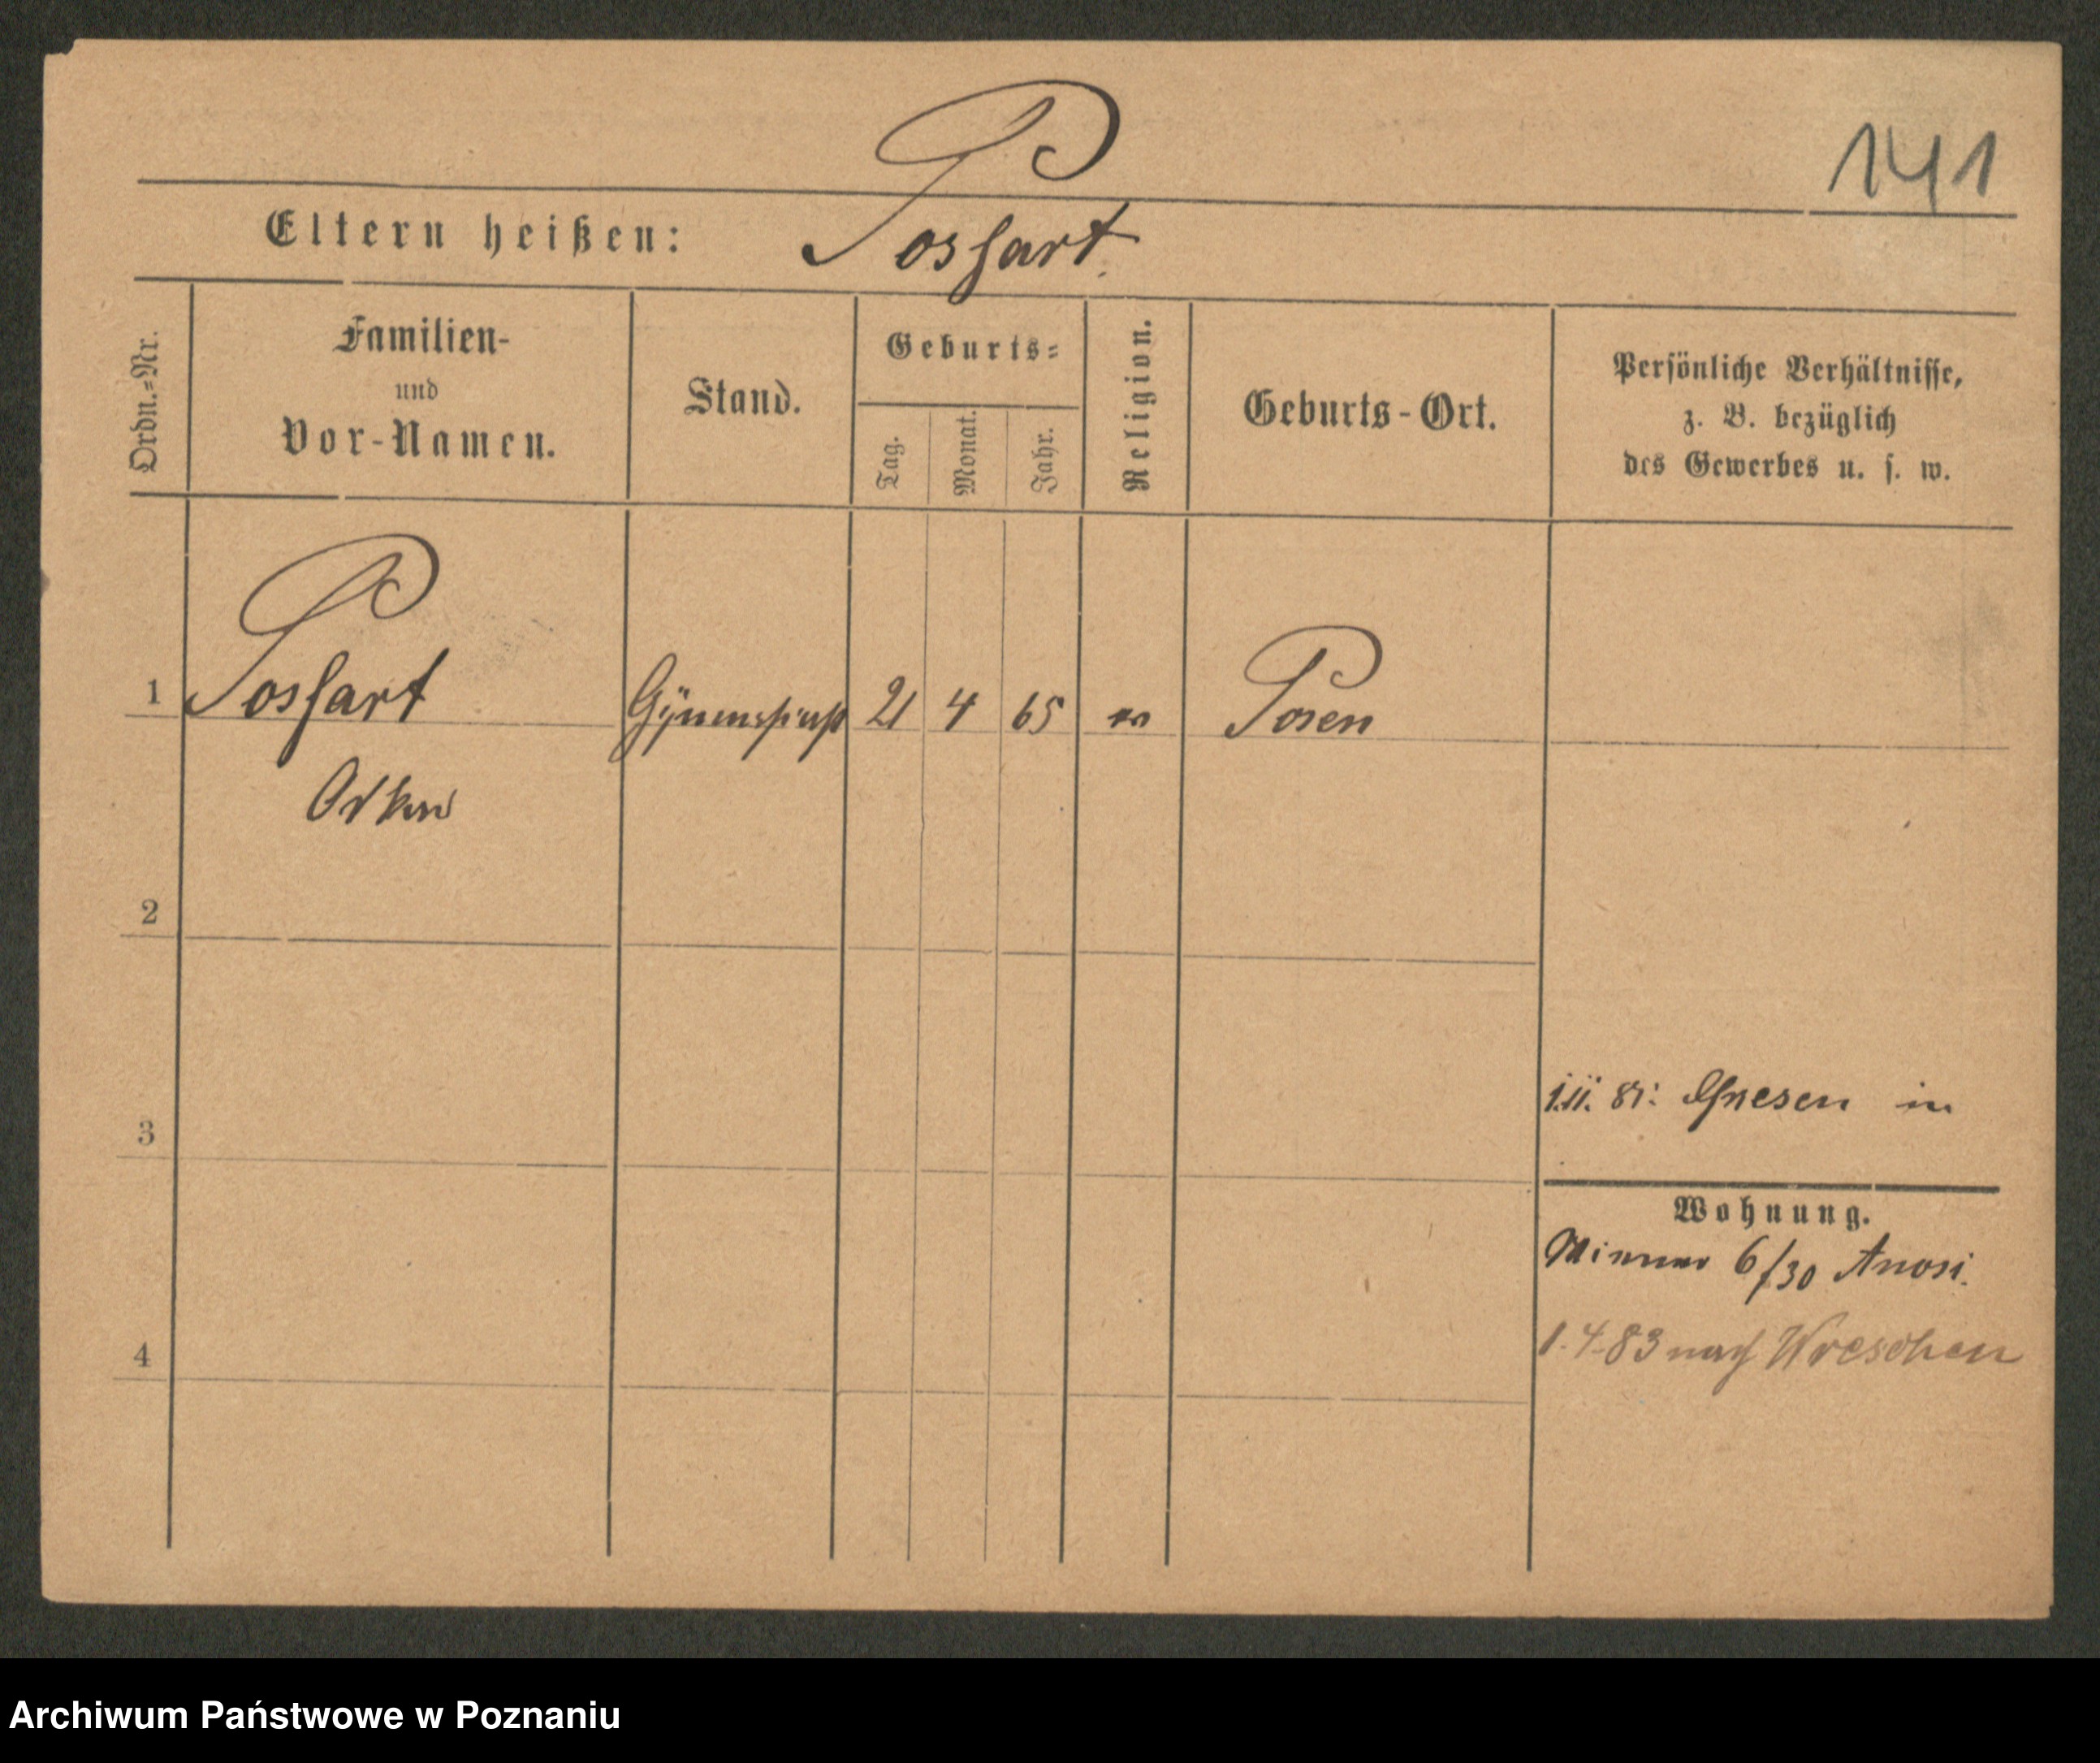 141
Eltern heißen: Possart.
Ordn.=Nr.
Familien-
und
Vor-Namen.
Stand.
Geburts=
Tag.
Monat.
Jahr.
Religion.
Geburts-Ort.
Persönliche Verhältnisse,
z. B. bezüglich
des Gewerbes u. s. w.
1 Possart 21 4 65 Posen
2
3
1.11. 81: Gnesen in
Wohnung.
6/30
4
1.4.83 nach Wreschen
Archiwum Państwowe w Poznaniu